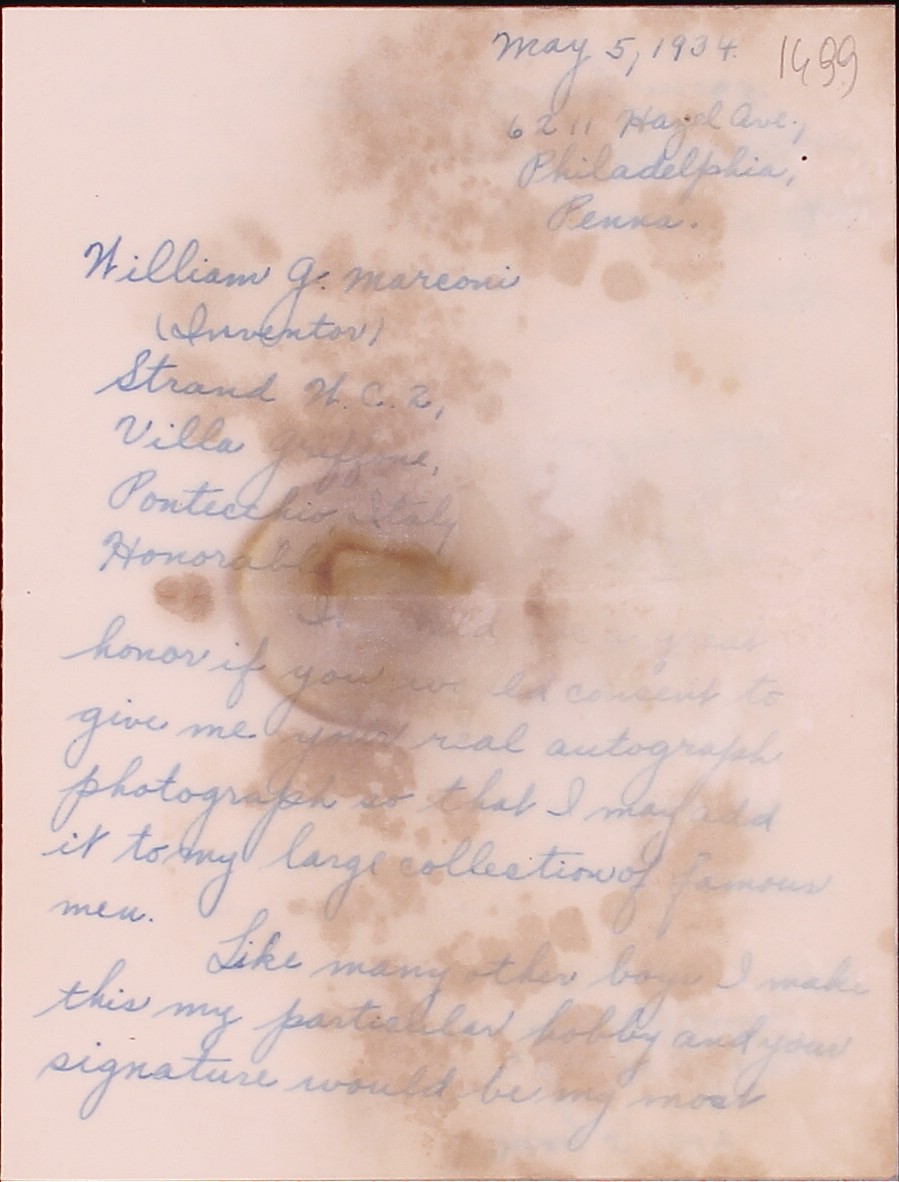 May 5, 1934.
1499
6211 Hazel Ave.,
Philadelphia,
Penna.
William G. Marconi
(Inventor)
Strand W. C. 2,
Villa Griffone,
Pontecchio, Italy
Honorable
I great
honor if you would consent to
give me your real autograph
photograph so that I may add
it to my large collection of famous
men.
Like many other boys I make
this my particular hobby and your
signature would be my most